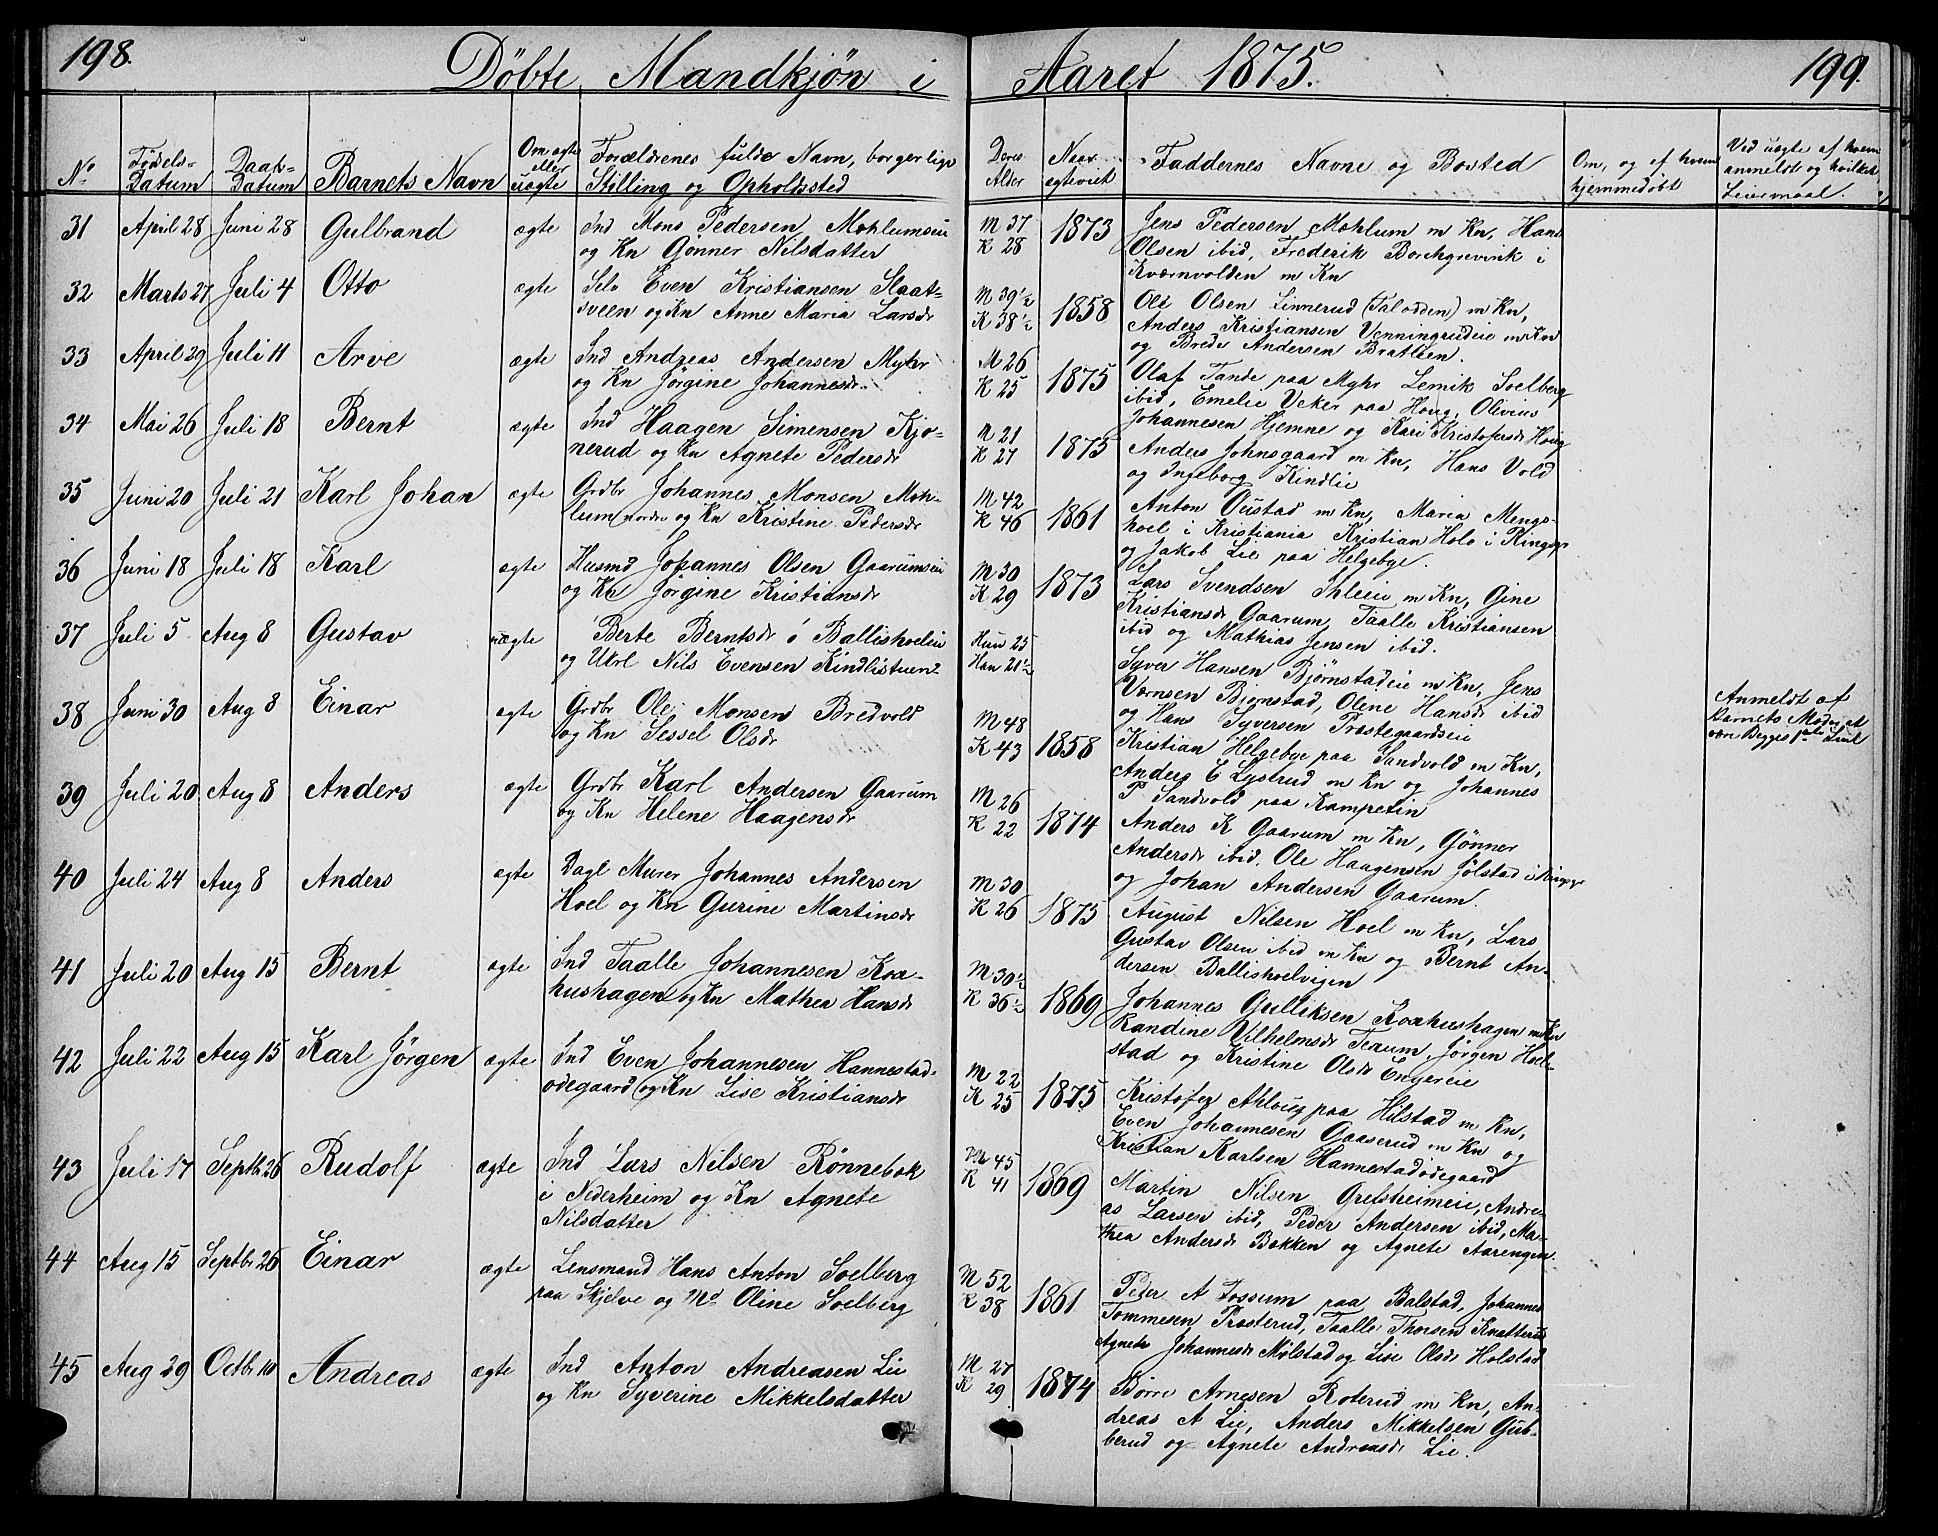 198.
Döbte Mandkjön i
Aaret 1875.
199.
No
Födsels=
Datum
Daab=
Datum
Barnets Navn
Om ægte
eller
uægte
Forældrenes fulde Navn, borgerlige
Stilling og Opholdssted
Deres
Alder
Naar
ægteviet
Faddernes Navne og Bosted
Om, og af hvem
hjemmedöbt
Ved uægte af hvem
anmeldt og hvilket
Leiermaal.
31 April 28 Juni 28 Gulbrand ægte Ind Mons Pedersen Mohlumseie
og Kn Gönner Nilsdatter
M 37
K 28
1873
Jens Pedersen Mohlum m Kn, Hans
Olsen ibid, Frederik Borchgrevink i
Kværnvolden m Kn
32 Marts 27 Juli 4 Otto ægte Selv Even Kristiansen Slaat=
sveen og Kn Anne Maria Larsdr
M 39½
K 38½
1858
Ole Olsen Linnerud (Talodden) m Kn,
Anders Kristiansen Venningrudeie m Kn
og Brede Andersen Bratlien.
33 April 29 Juli 11 Arve ægte Ind Andreas Andersen Myhr
og Kn Jörgine Johannesdr.
M 26
K 25
1875
Olaf Tande paa Myhr Lemik Soelberg
ibid, Emelie Veker paa Houg, Olivius
Johannesen Hjemne og Kari Kristofersdr Houg
34 Mai 26 Juli 18 Bernt ægte Ind Haagen Simensen Kjo=
nerud og Kn Agnete Pedersdr
M 21
K 27
1875
Anders Johnsgaard m Kn, Hans Vold
og Ingeborg Kindlie
35 Juni 20 Juli 21 Karl Johan ægte Grdbr Johannes Monsen Moh=
lum nordre og Kn Kristine Pedersdr
M 42
K 46
1861
Anton Oustad m Kn, Maria Mengs=
hoel i Kristiania Kristian Holo i Ringsgr
og Jakob Lie paa Helgebye.
36 Juni 18 Juli 18 Karl ægte Husmd Johannes Olsen Gaarumseie
og Kn Jörgine Kristiansdr
M 30
K 29
1873
Lars Svendsen Ihleie m Kn, Gine
Kristiansdr Gaarum, Taalle Kristiansen
ibid og Mathias Jensen ibid.
37 Juli 5 Aug 8 Gustav uægte Berte Berntsdr i Ballishoeleie
og Ukrl Nils Evensen Kindlistuen
Hun 25
Han 21½
Syver Hansen Björnstadeie m Kn, Jens
Værnsen Bjornstad, Olene Hansdr ibid
og Hans Syversen Prostegaardseie
Anmeldt af
Barnets Moder at
være Begges 1ste Leiel
38 Juni 30 Aug 8 Einar ægte Grdbr Ole Monsen Bredvold
og Kn Sessel Olsdr
M 48
K 43
1858
Kristian Helgebye paa Sandvold m Kn,
Anders E Lystrud m Kn og Johannes
P Sandvold paa Kampetin
39 Juli 20 Aug 8 Anders ægte Grdbr Karl Andersen Gaarum
og Kn Helene Haagensdr
M 26
K 22
1874
Anders K Gaarum m Kn, Gönner
Andersdr ibid, Ole Haagensen Jölstad i Ringsgr
og Johan Andersen Gaarum.
40 Juli 24 Aug 8 Anders ægte Dagl Murer Johannes Andersen
Hoel og Kn Gurine Martinsdr
M 30
K 26
1875
August Nilsen Hoel m Kn, Lars
Gustav Olsen ibid m Kn og Bernt An=
dersen Ballishoelvigen
41 Juli 20 Aug 15 Bernt ægte Ind Taalle Johannesen Kva=
hushagen og Kn Mathea Hansdr
M 30½
K 36½
1869
Johannes Gulliksen Kvahushagen m Kn
Randine Vilhelmsdr Teaum, Jörgen Hoel=
stad og Kristine Olsdr Engereie
42 Juli 22 Aug 15 Karl Jörgen ægte Ind Even Johannesen Hannestad=
ödegaard og Kn Lise Kristiansdr
M 22
K 25
1875
Kristofer Ahlbug paa Hilstad m Kn,
Even Johannesen Gaaserud m Kn og
Kristian Karlsen Hannestadödegaard
43 Juli 17 Septbr 26 Rudolf ægte Ind Lars Nilsen Rönnebok
i Nederheim og Kn Agnete
Nilsdatter
M 45
K 41
1869
Martin Nilsen Grefsheimeie, Andre=
as Larsen ibid, Peder Andersen ibid, Ma=
thea Andersdr Bakken og Agnete Aarengen.
44 Aug 15 Septbr 26 Einar ægte Lensmand Hans Anton Soelberg
paa Skjelve og Md Oline Soelberg
M 52
K 38
1861
Peder A Fossum paa Balstad, Johannes
Tommesen Prosterud, Taalle Thorsen Knatterud
Agnete Johannesdr Mölstad og Lise Olsdr Holstad
45 Aug 29 Octbr 10 Andreas ægte Ind Anton Andreasen Lie
og Kn Syverine Mikkelsdatter
M 27
K 29
1874
Börre Arnesen Roterud m Kn, An=
dreas A Lie, Anders Mikkelsen Gub=
berud og Agnete Andreasdr Lie.